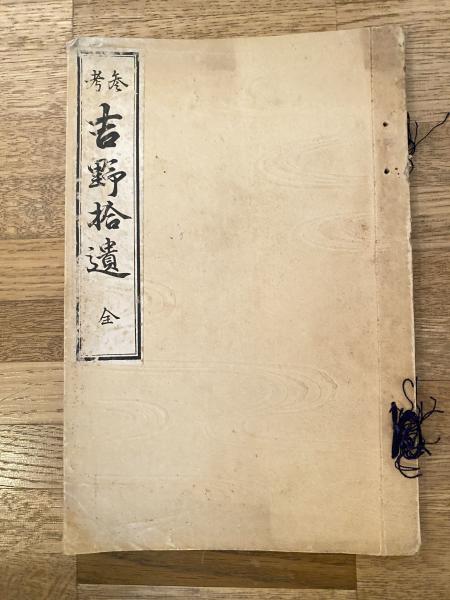 参考
吉野拾遺
全